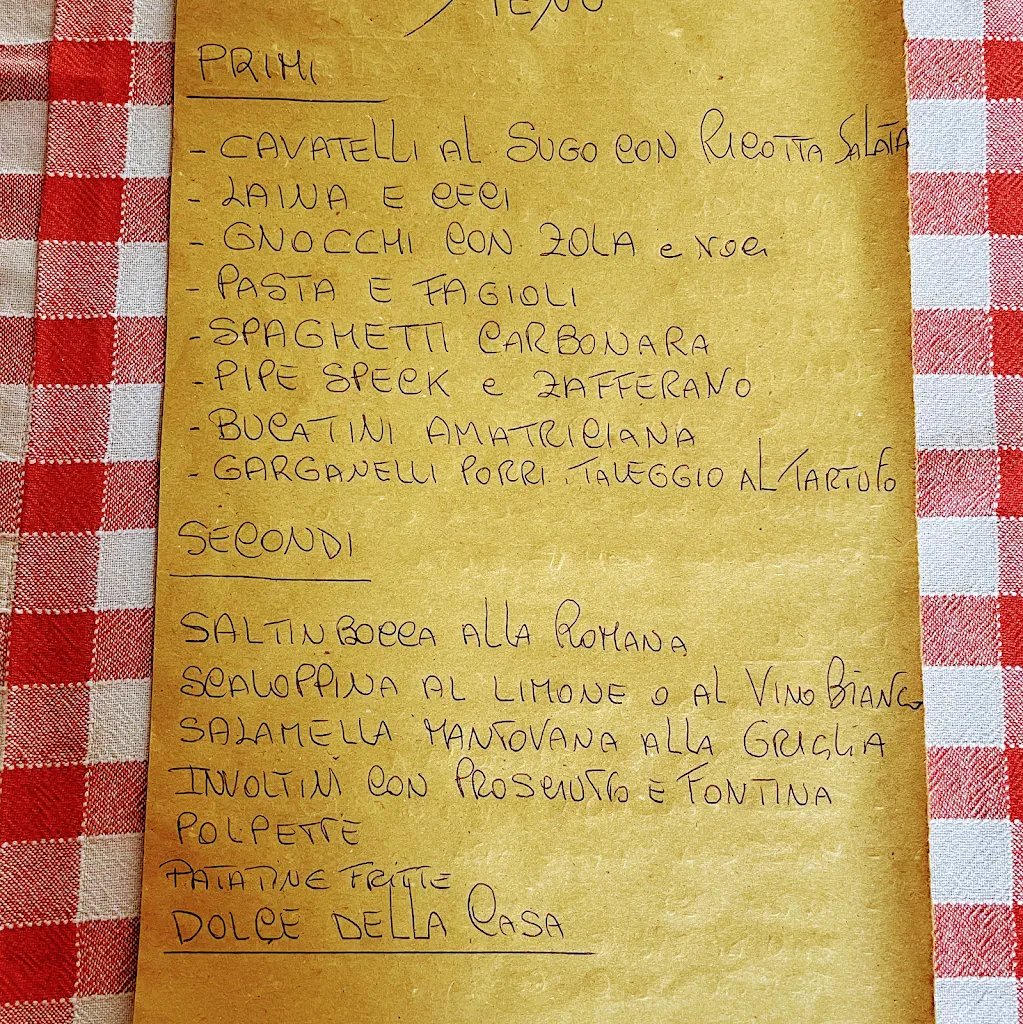 MENU
PRIMI
- CAVATELLI AL SUGO CON RICOTTA SALATA
- LAINA E CECI
- GNOCCHI CON ZOLA e NOCI
- PASTA E FAGIOLI
- SPAGHETTI CARBONARA
- PIPE SPECK e ZAFFERANO
- BUCATINI AMATRICIANA
- GARGANELLI PORRI TALEGGIO AL TARTUFO
SECONDI
SALTINBOCCA ALLA ROMANA
SCALOPPINA AL LIMONE O AL VINO BIANCO
SALAMELLA MANTOVANA ALLA GRIGLIA
INVOLTINI CON PROSCIUTTO E FONTINA
POLPETTE
PATATINE FRITTE
DOLCE DELLA CASA